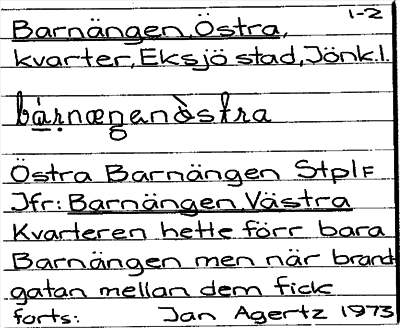 1-2
Barnängen, Östra,
kvarter, Eksjö stad, Jönk.l.
bárnæŋenòstra
Östra Barnängen StplF
Jfr: Barnängen, Västra
Kvarteren hette förr bara
Barnängen men när brand-
gatan mellan dem fick
forts: Jan Agertz 1973